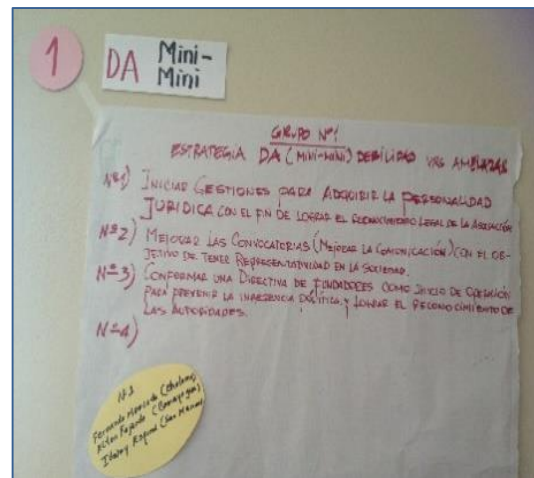 1
DA Mini-
Mini
GRUPO Nº1
ESTRATEGIA DA (MINI-MINI) DEBILIDAD VRS AMENAZAS
Nº1) INICIAR GESTIONES PARA ADQUIRIR LA PERSONALIDAD
JURIDICA CON EL FIN DE LOGRAR EL RECONOCIMIENTO LEGAL DE LA ASOCIACIÓN
Nº2) MEJORAR LAS CONVOCATORIAS (MEJORAR LA COMUNICACIÓN) CON EL OB-
JETIVO DE TENER REPRESENTATIVIDAD EN LA SOCIEDAD.
Nº3) CONFORMAR UNA DIRECTIVA DE FUNDADORES COMO INICIO DE OPERACIÓN
PARA PREVENIR LA INGERENCIA POLÍTICA, Y LOGRAR EL RECONOCIMIENTO DE
LAS AUTORIDADES.
Nº4)
Nº1
Fernando (Choluteca)
Fajardo (Comayagua)
(San Marcos)